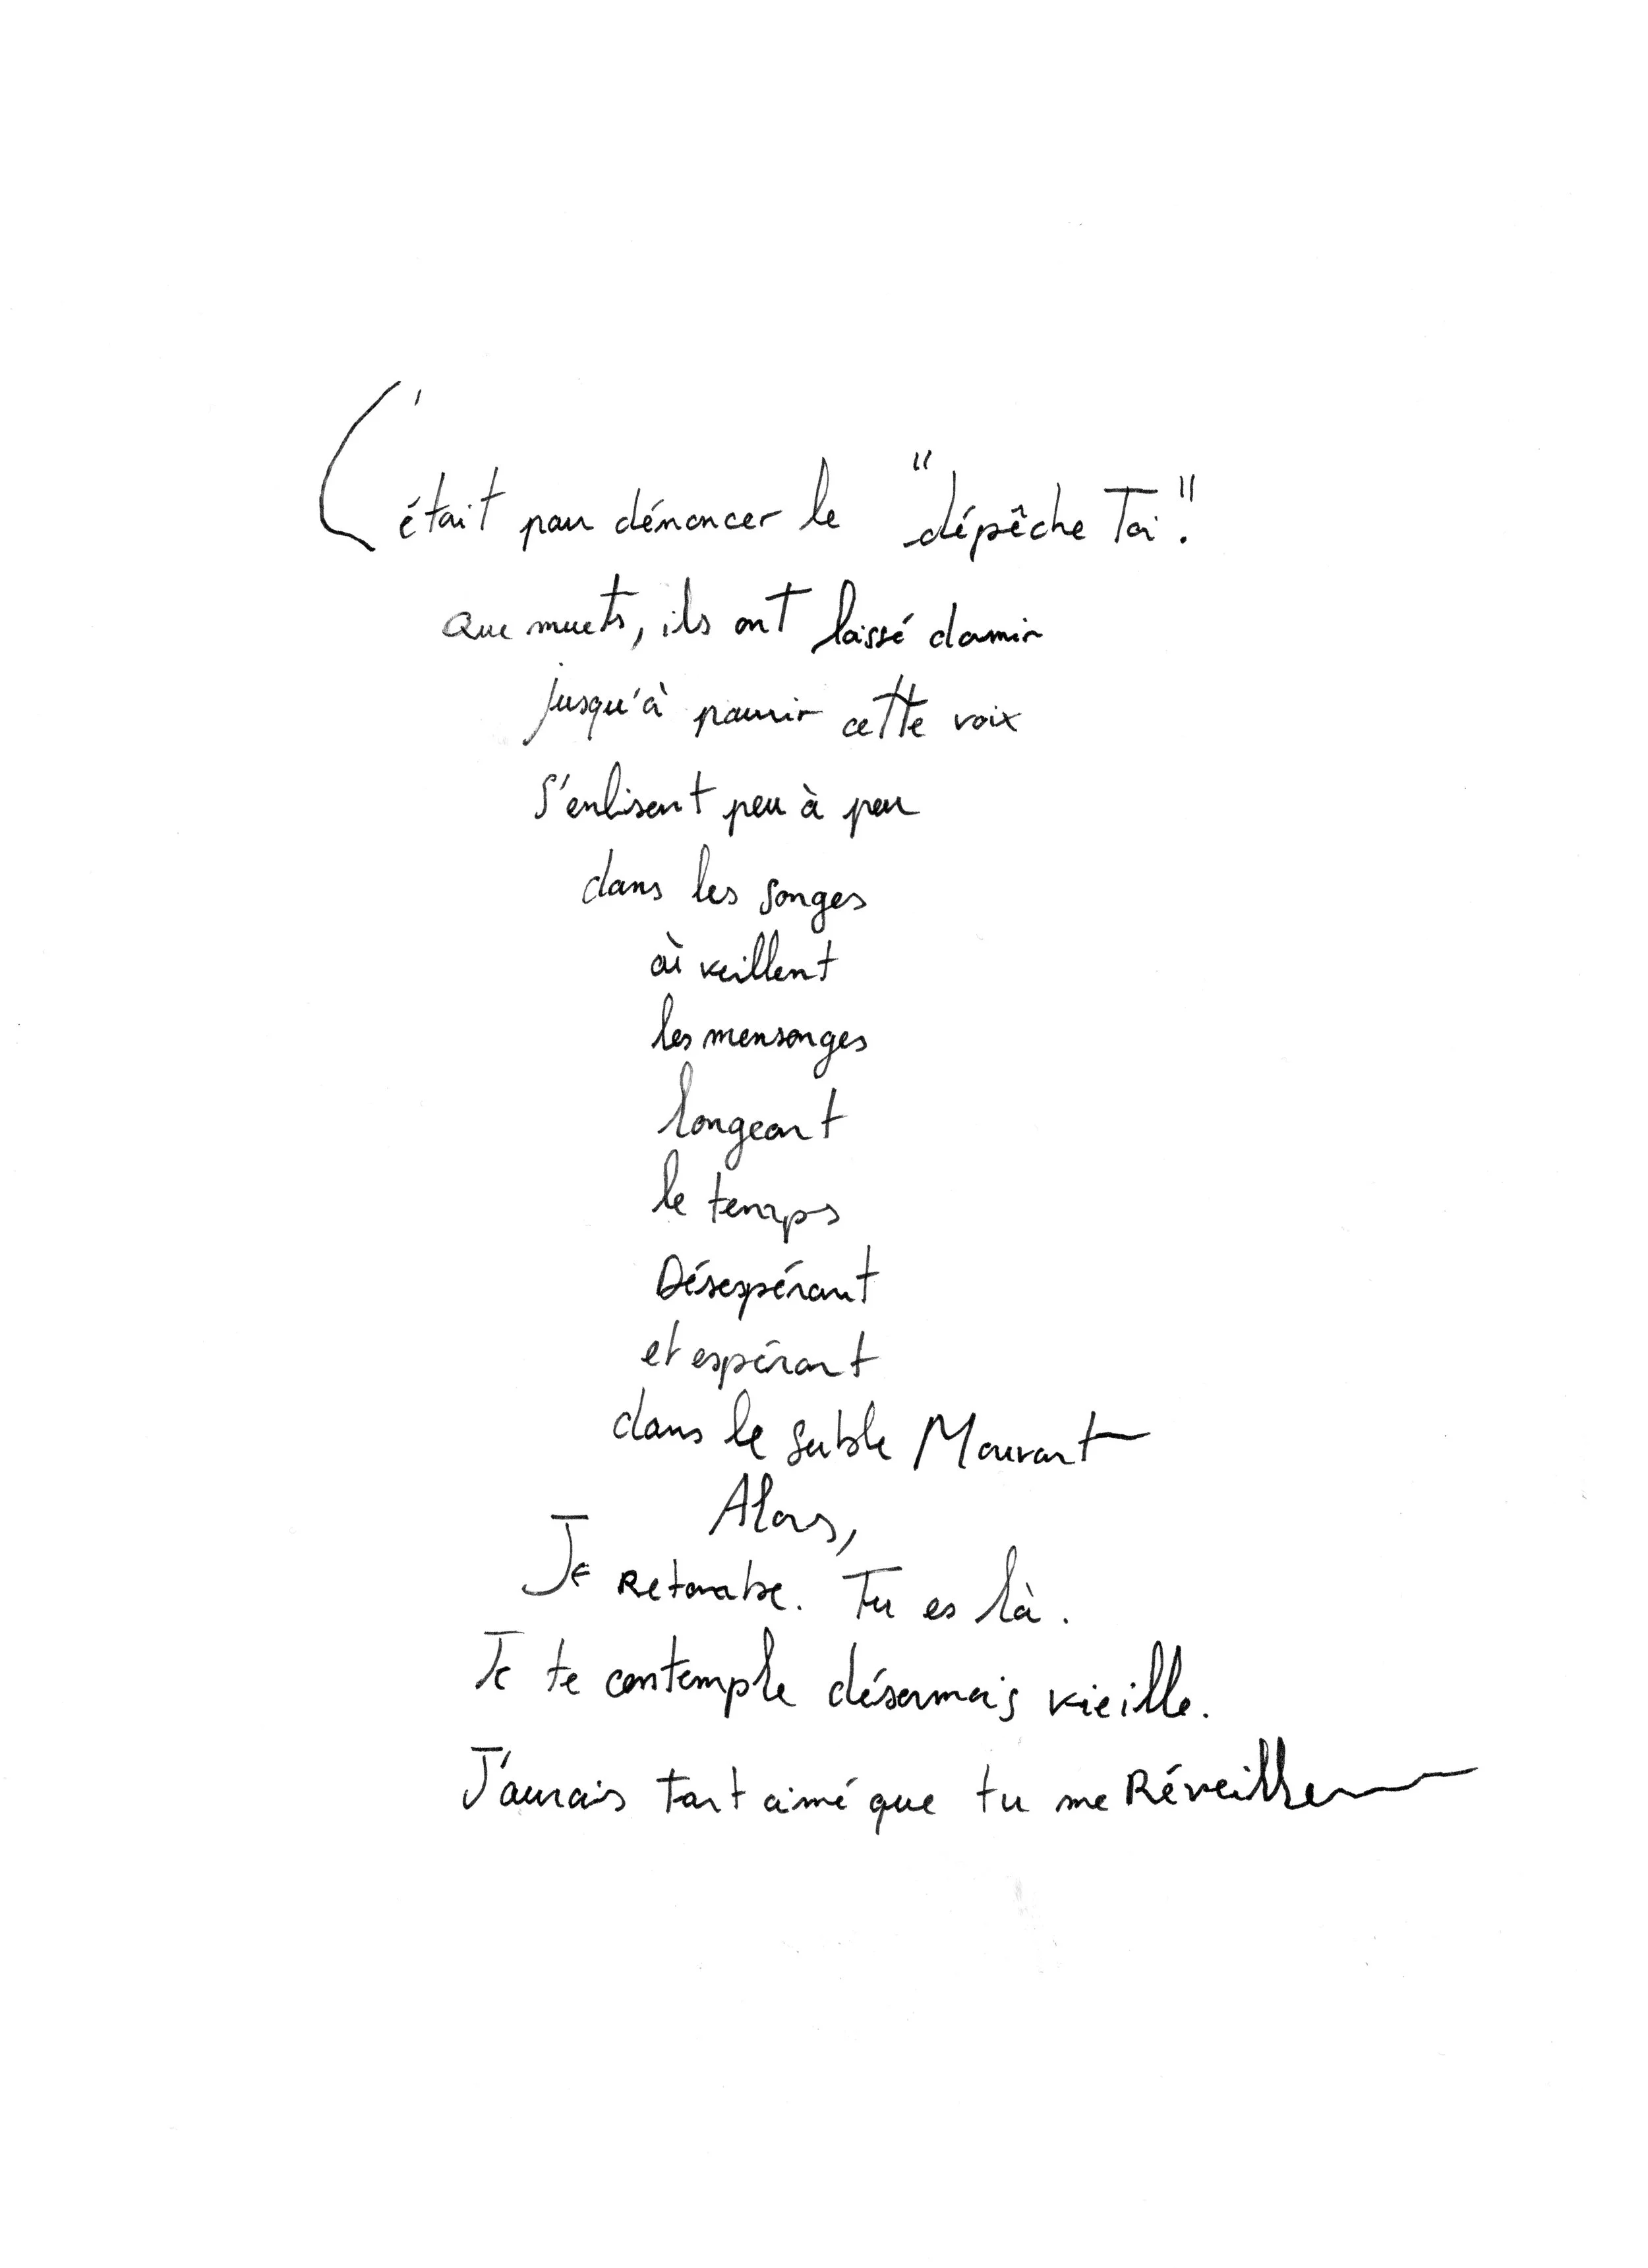 C'était pour dénoncer le "dépêche Toi."
Que muets, ils ont laissé dormir
jusqu'à pourrir cette voix
S'enlisent peu à peu
dans les songes
où veillent
les mensonges
longeant
le temps
Désespérant
et espérant
dans le sable Mouvant
Alors,
Je Retombe. Tu es là.
Je te contemple désormais vieille.
J'aurais tant aimé que tu me Réveilles